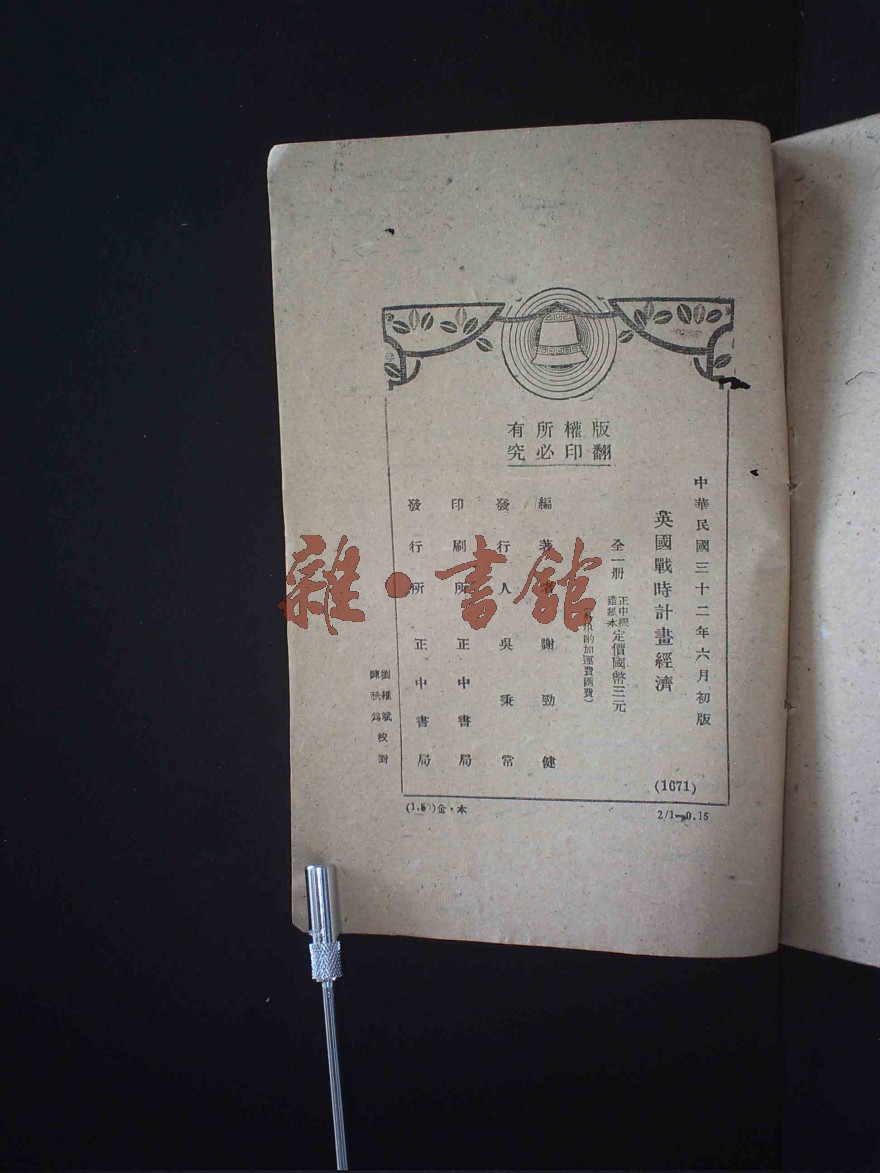 版權所有
翻印必究
中華民國三十二年六月初版
英國戰時計畫經濟
全一册
正中機
造紙本
定價國幣三元
酌加運費匯費）
編著者 謝勁健
發行人 吳秉常
印刷所 正中書局
發行所 正中書局
校對
(1671)
(1.50)金·木
2/1—0.15
雜·書館